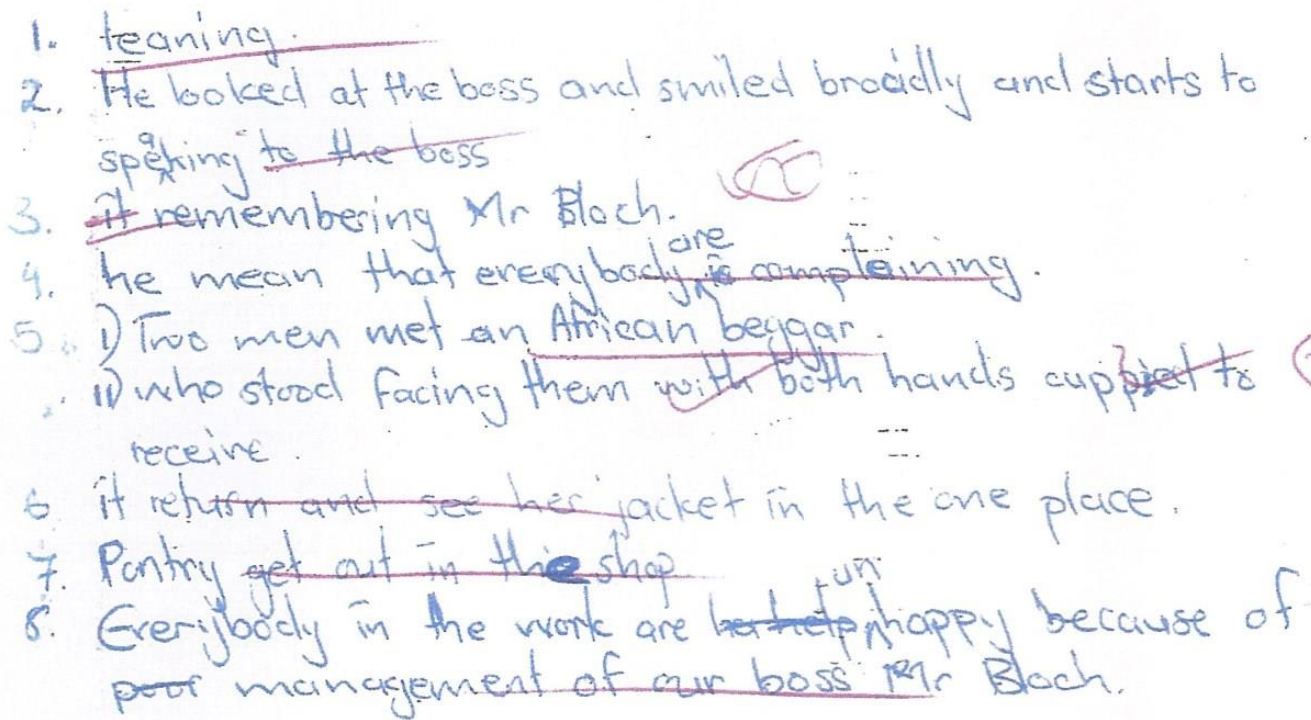 1. teaning.
2. He looked at the boss and smiled broadly and starts to
speaking to the boss
3. it remembering Mr Bloch.
4. he mean that everybody are complaining.
5. i) Two men met an African beggar.
ii) who stood facing them with both hands cupped to
receive.
6 it return and see her jacket in the one place.
7. Pantry get out in the shop
8. Everybody in the work are unhappy because of
poor management of our boss Mr Bloch.